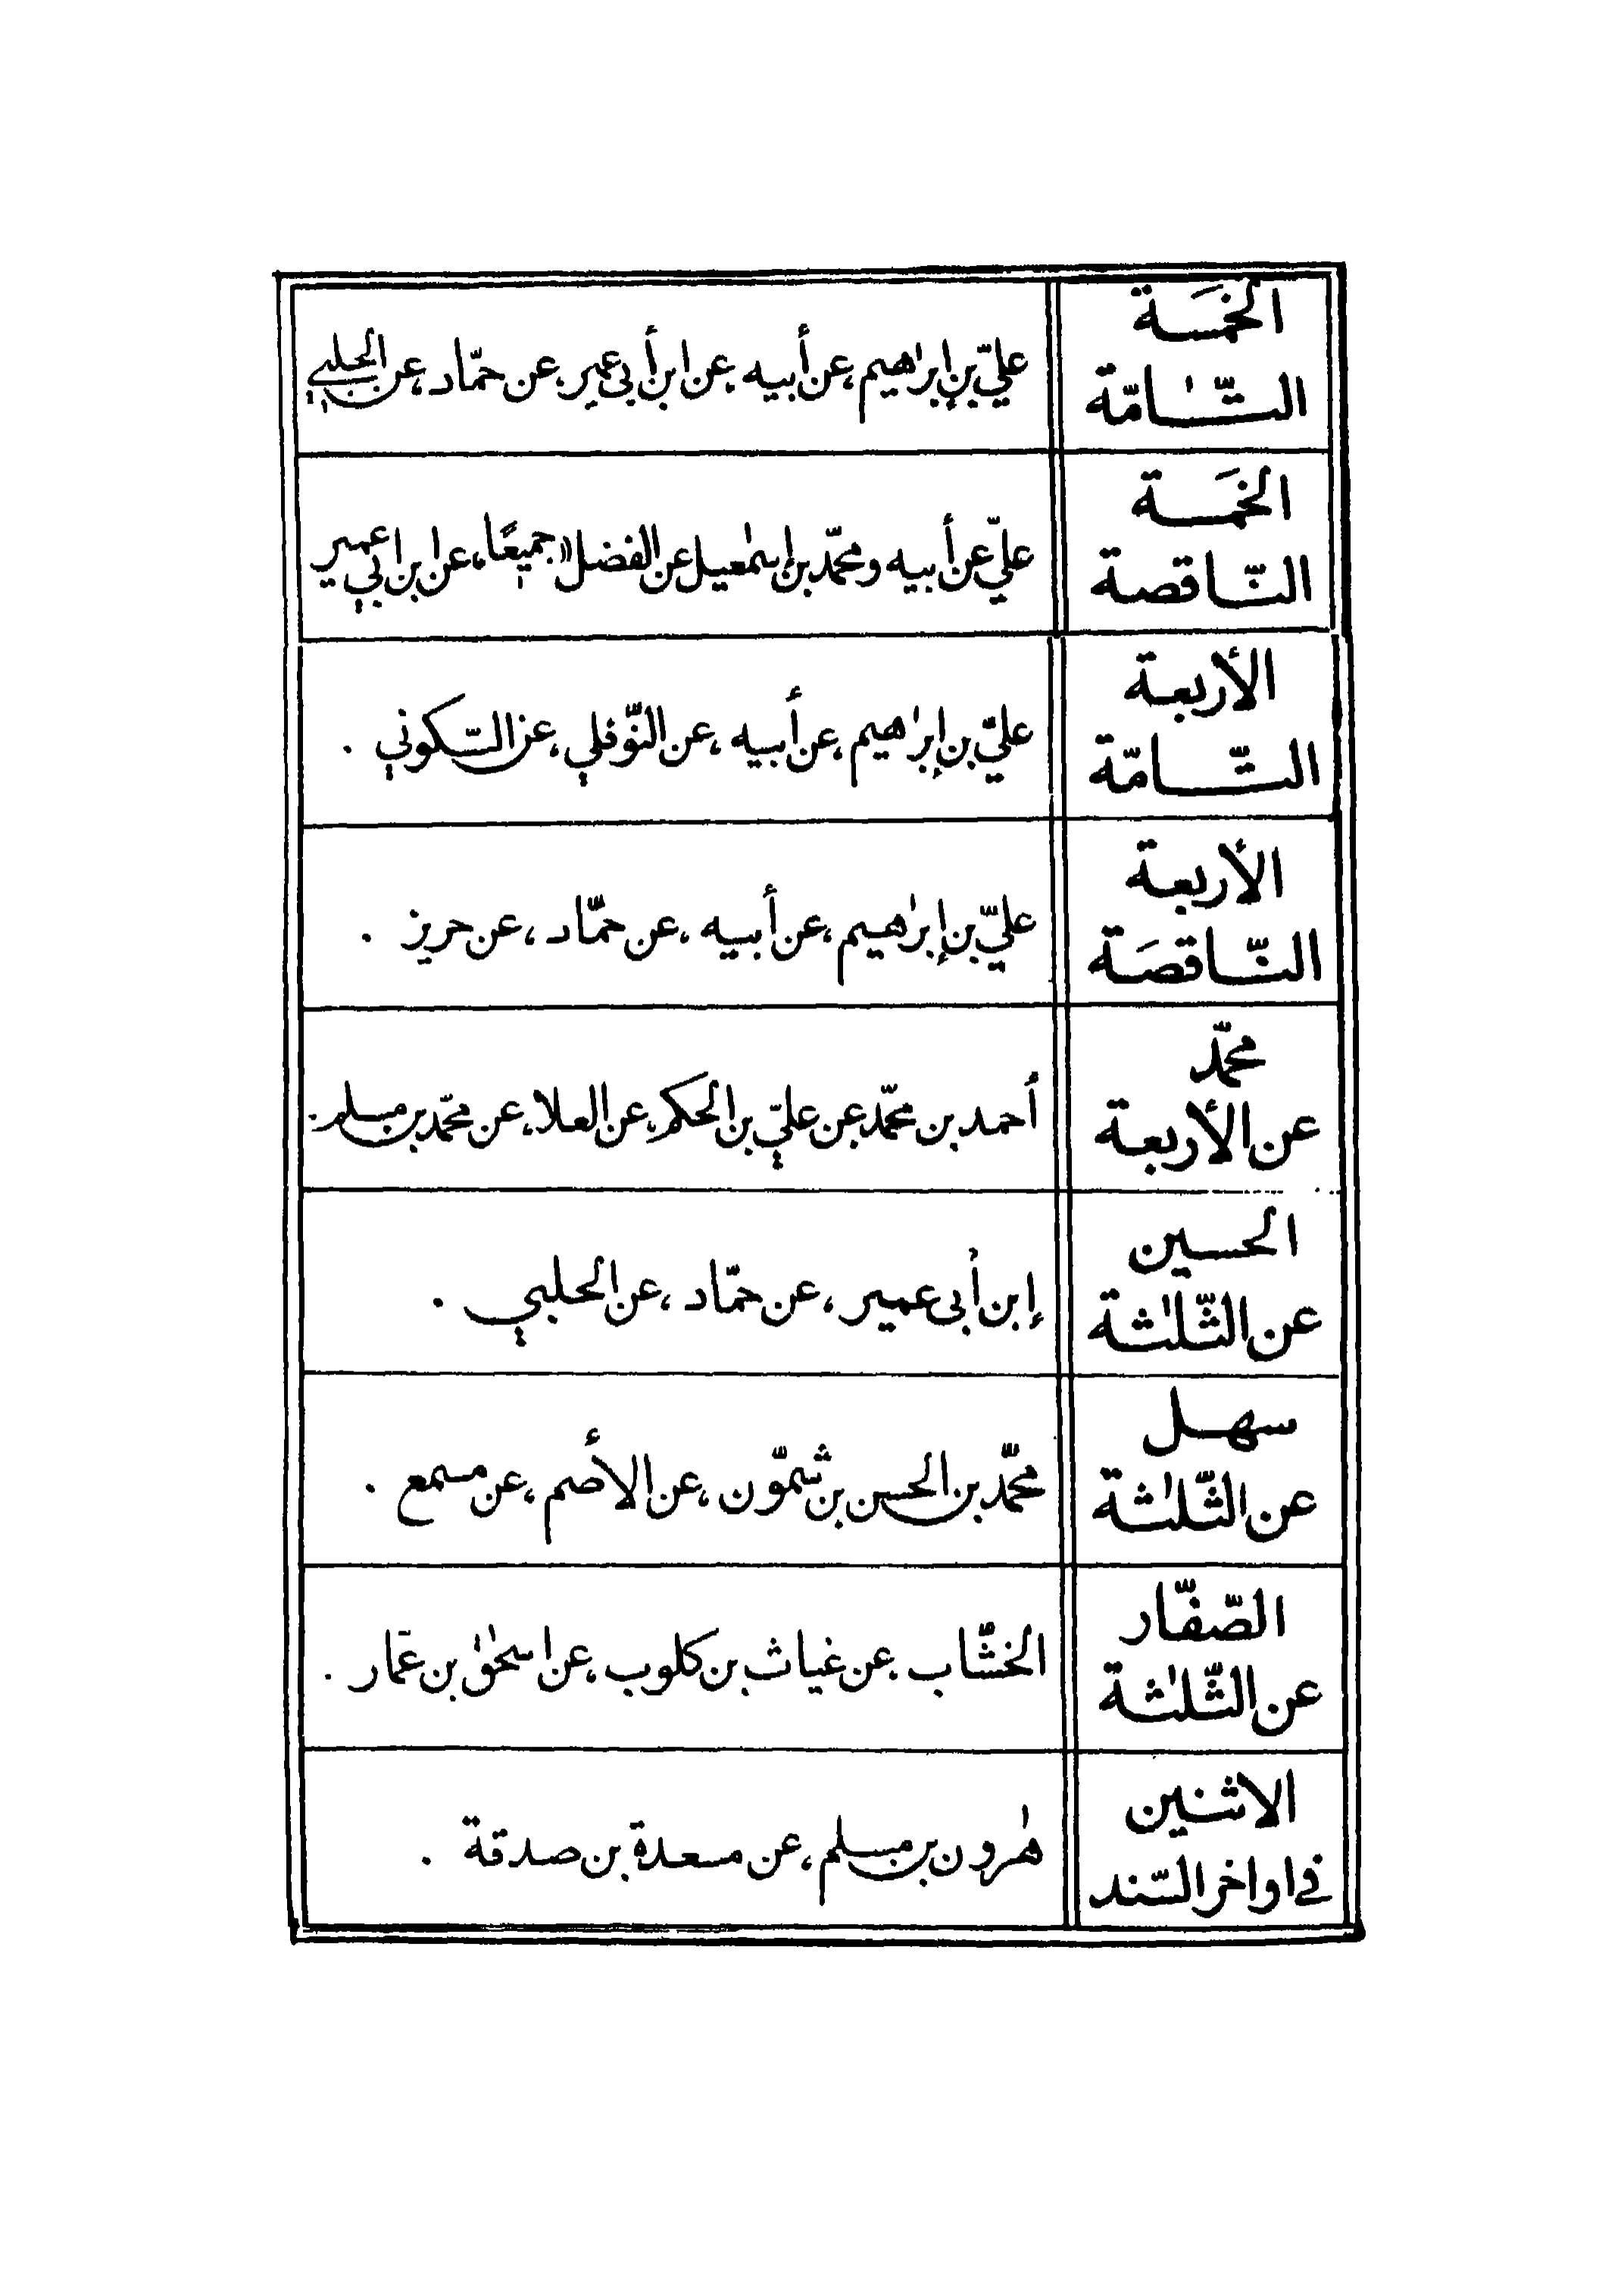 الخَمسَة
التّامّة
عليّ بن إبراهيم، عن أبيه، عن ابن أبى عمير، عن حمّاد، عن الحلبي
الخمَسة
النّاقصة
عليّ عن أبيه ومحمّد بن إسمٰعيل عن الفضل «جميعًا»، عن ابن ابي عمير
الأربعة
التّامّة
عليّ بن إبرٰاهيم، عن أبيه، عن النّوفلي، عن السّكوني .
الأربعة
النّاقصَة
عليّ بن إبرٰاهيم، عن أبيه، عن حمّاد، عن حريز .
محمّد
عن الأربعة
أحمد بن محمّد، عن عليّ بن الحكم، عن العلا، عن محمّد بن مسلم .
الحسين
عن الثّلٰثة
إبن أبى عمير، عن حمّاد، عن الحلبي .
سهل
عن الثّلٰثة
محمّد بن الحسن بن شمّون، عن الأصم، عن مسمع .
الصّفّار
عن الثّلٰثة
الخشّاب، عن غياث بن كلوب، عن اسحٰق بن عمّار .
الاثنين
في اواخر السّند
هٰرون بن مسلم، عن مسعدة بن صدقة .